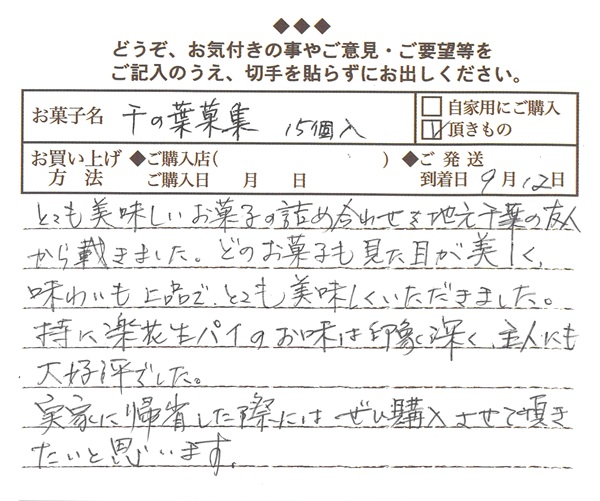 ◆◆◆
どうぞ、お気付きの事やご意見・ご要望等を
ご記入のうえ、切手を貼らずにお出しください。
お菓子名 千の葉菓集 15個入
□自家用にご購入
☑頂きもの
お買い上げ方法 ◆ご購入店( ) ◆ご発送
ご購入日 月 日 到着日 9月12日
とても美味しいお菓子の詰め合わせを地元千葉の友人
から載きました。どのお菓子も見た目が美しく、
味わいも上品で、とても美味しくいただきました。
特に楽花生パイのお味は印象深く、主人にも
大好評でした。
実家に帰省した際にはぜひ購入させて頂き
たいと思います。